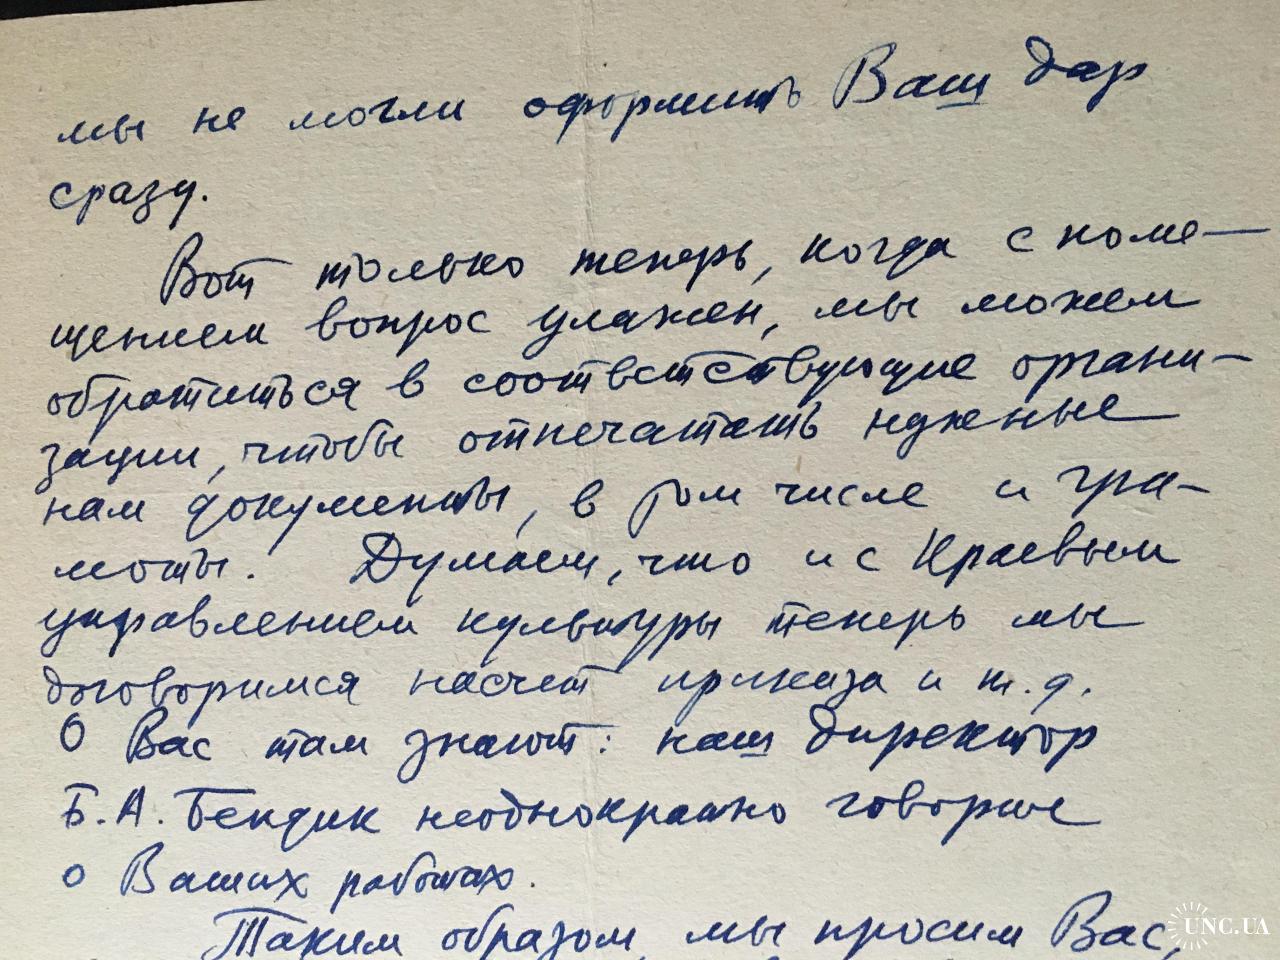 мы не могли оформить Ваш дар
сразу.
Вот только теперь, когда с поме-
щением вопрос улажен, мы можем
обратиться в соответствующие органи-
зации, чтобы отпечатать нужные
нам документы, в том числе и гра-
моты. Думаем, что и с Краевым
управлением культуры теперь мы
договоримся насчет приказа и т.д.
О Вас там знают: наш директор
Б.А. Бендик неоднократно говорил
о Ваших работах.
Таким образом, мы просим Вас,
UNC.UA